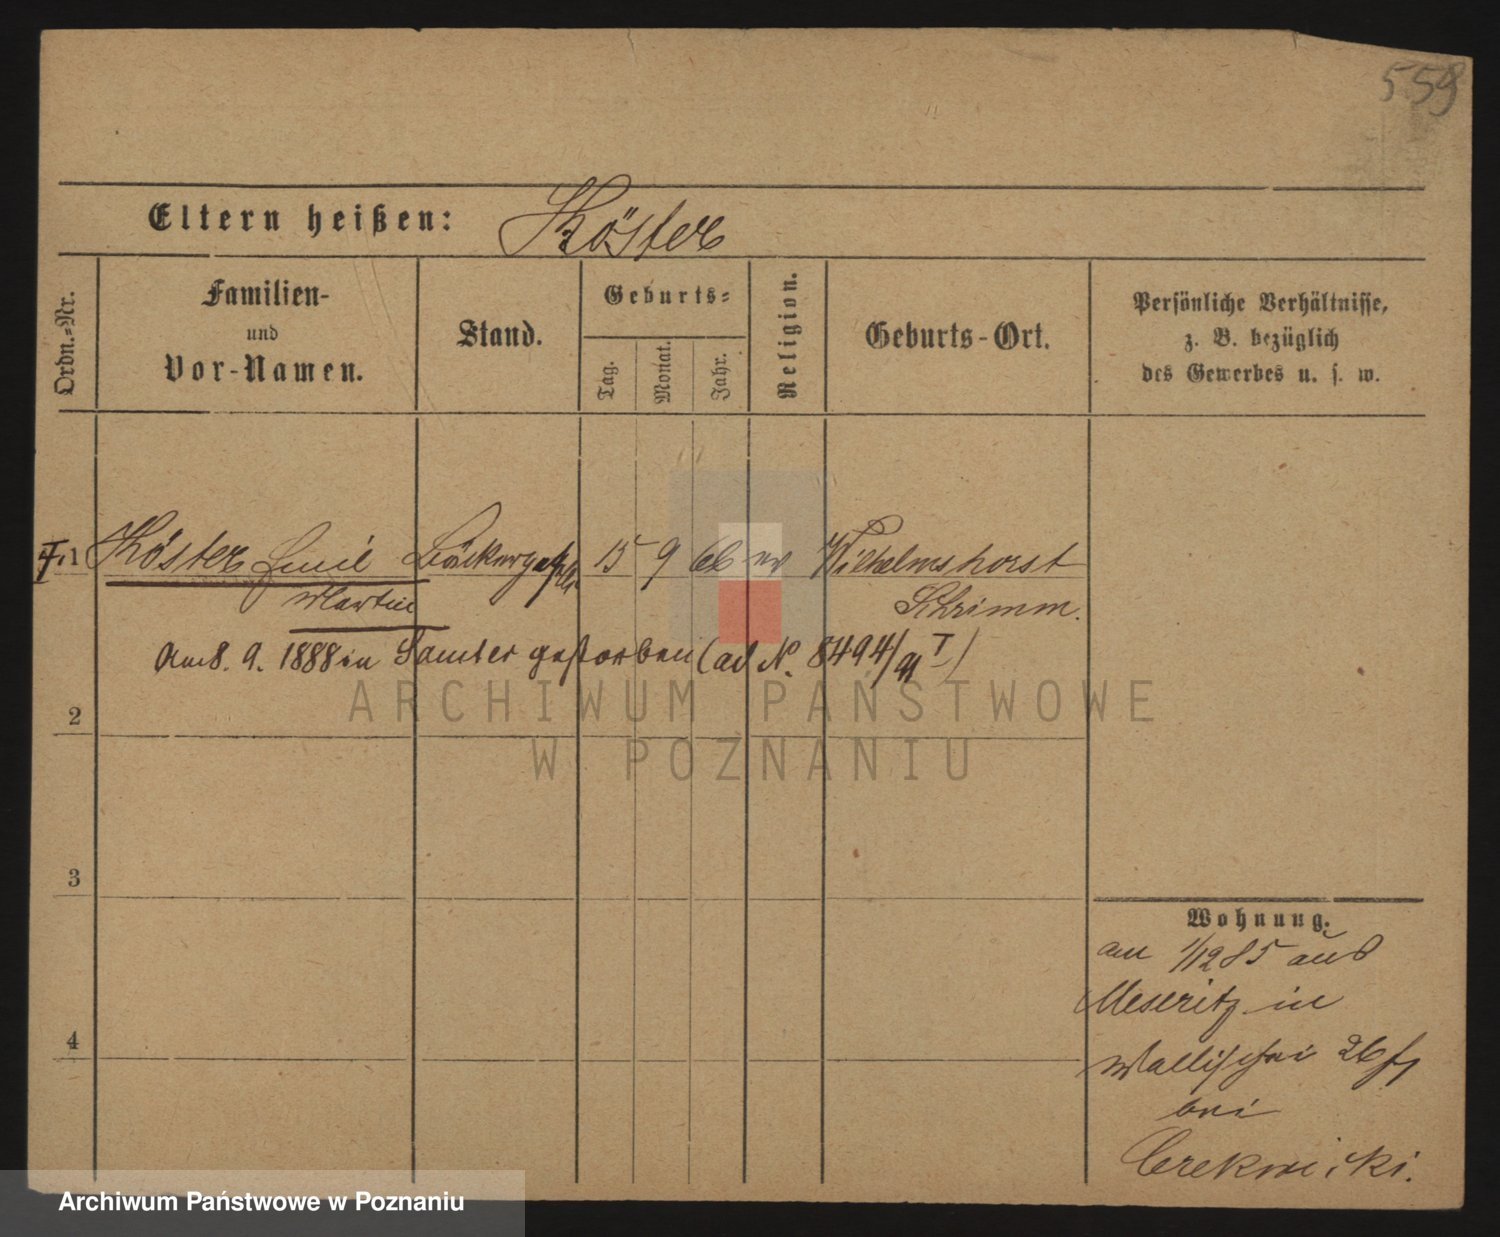 559
Eltern heißen: Köster
Ordn.-Nr.
Familien-
und
Vor-Namen.
Stand.
Geburts-
Tag.
Monat.
Jahr.
Religion.
Geburts-Ort.
Persönliche Verhältnisse,
z. B. bezüglich
des Gewerbes u. s. w.
1 Köster Emil Bäckergeselle 15 9 66 ev Wilhelmshorst
Martin Schrimm.
Am 8. 9. 1888 in Samter gestorben (ad N. 8494/91 I)
2
3
4
Wohnung.
am 1/12 85 aus
Meseritz in
Wallischei 26
bei
Cerekwicki.
ARCHIWUM PAŃSTWOWE
W POZNANIU
Archiwum Państwowe w Poznaniu